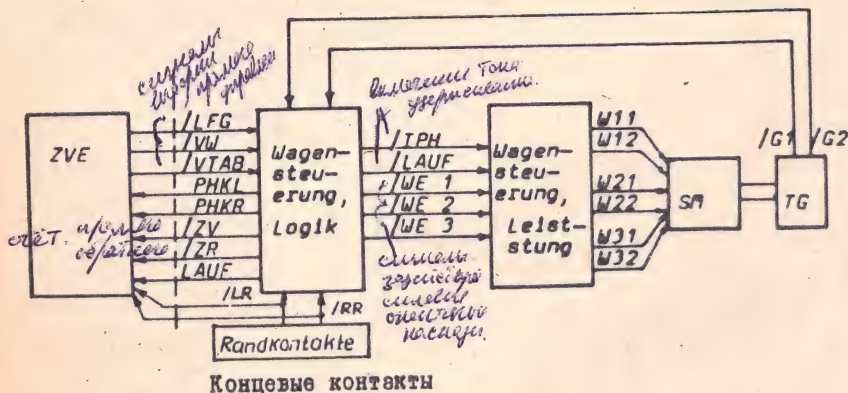 сигналы
прямого
ZVE
/LFG
/VW
/VTAB
PHKL
PHKR
/ZV
/ZR
LAUF
/LR
/RR
счёт. прямого
обратного
Wagen-
steu-
erung,
Logik
включения тока
удерживания
/IPH
/LAUF
/WE 1
/WE 2
/WE 3
сигналы
Wagen-
steu-
erung,
Leist-
stung
W11
W12
W21
W22
W31
W32
SM
/G1
/G2
TG
Randkontakte
Концевые контакты